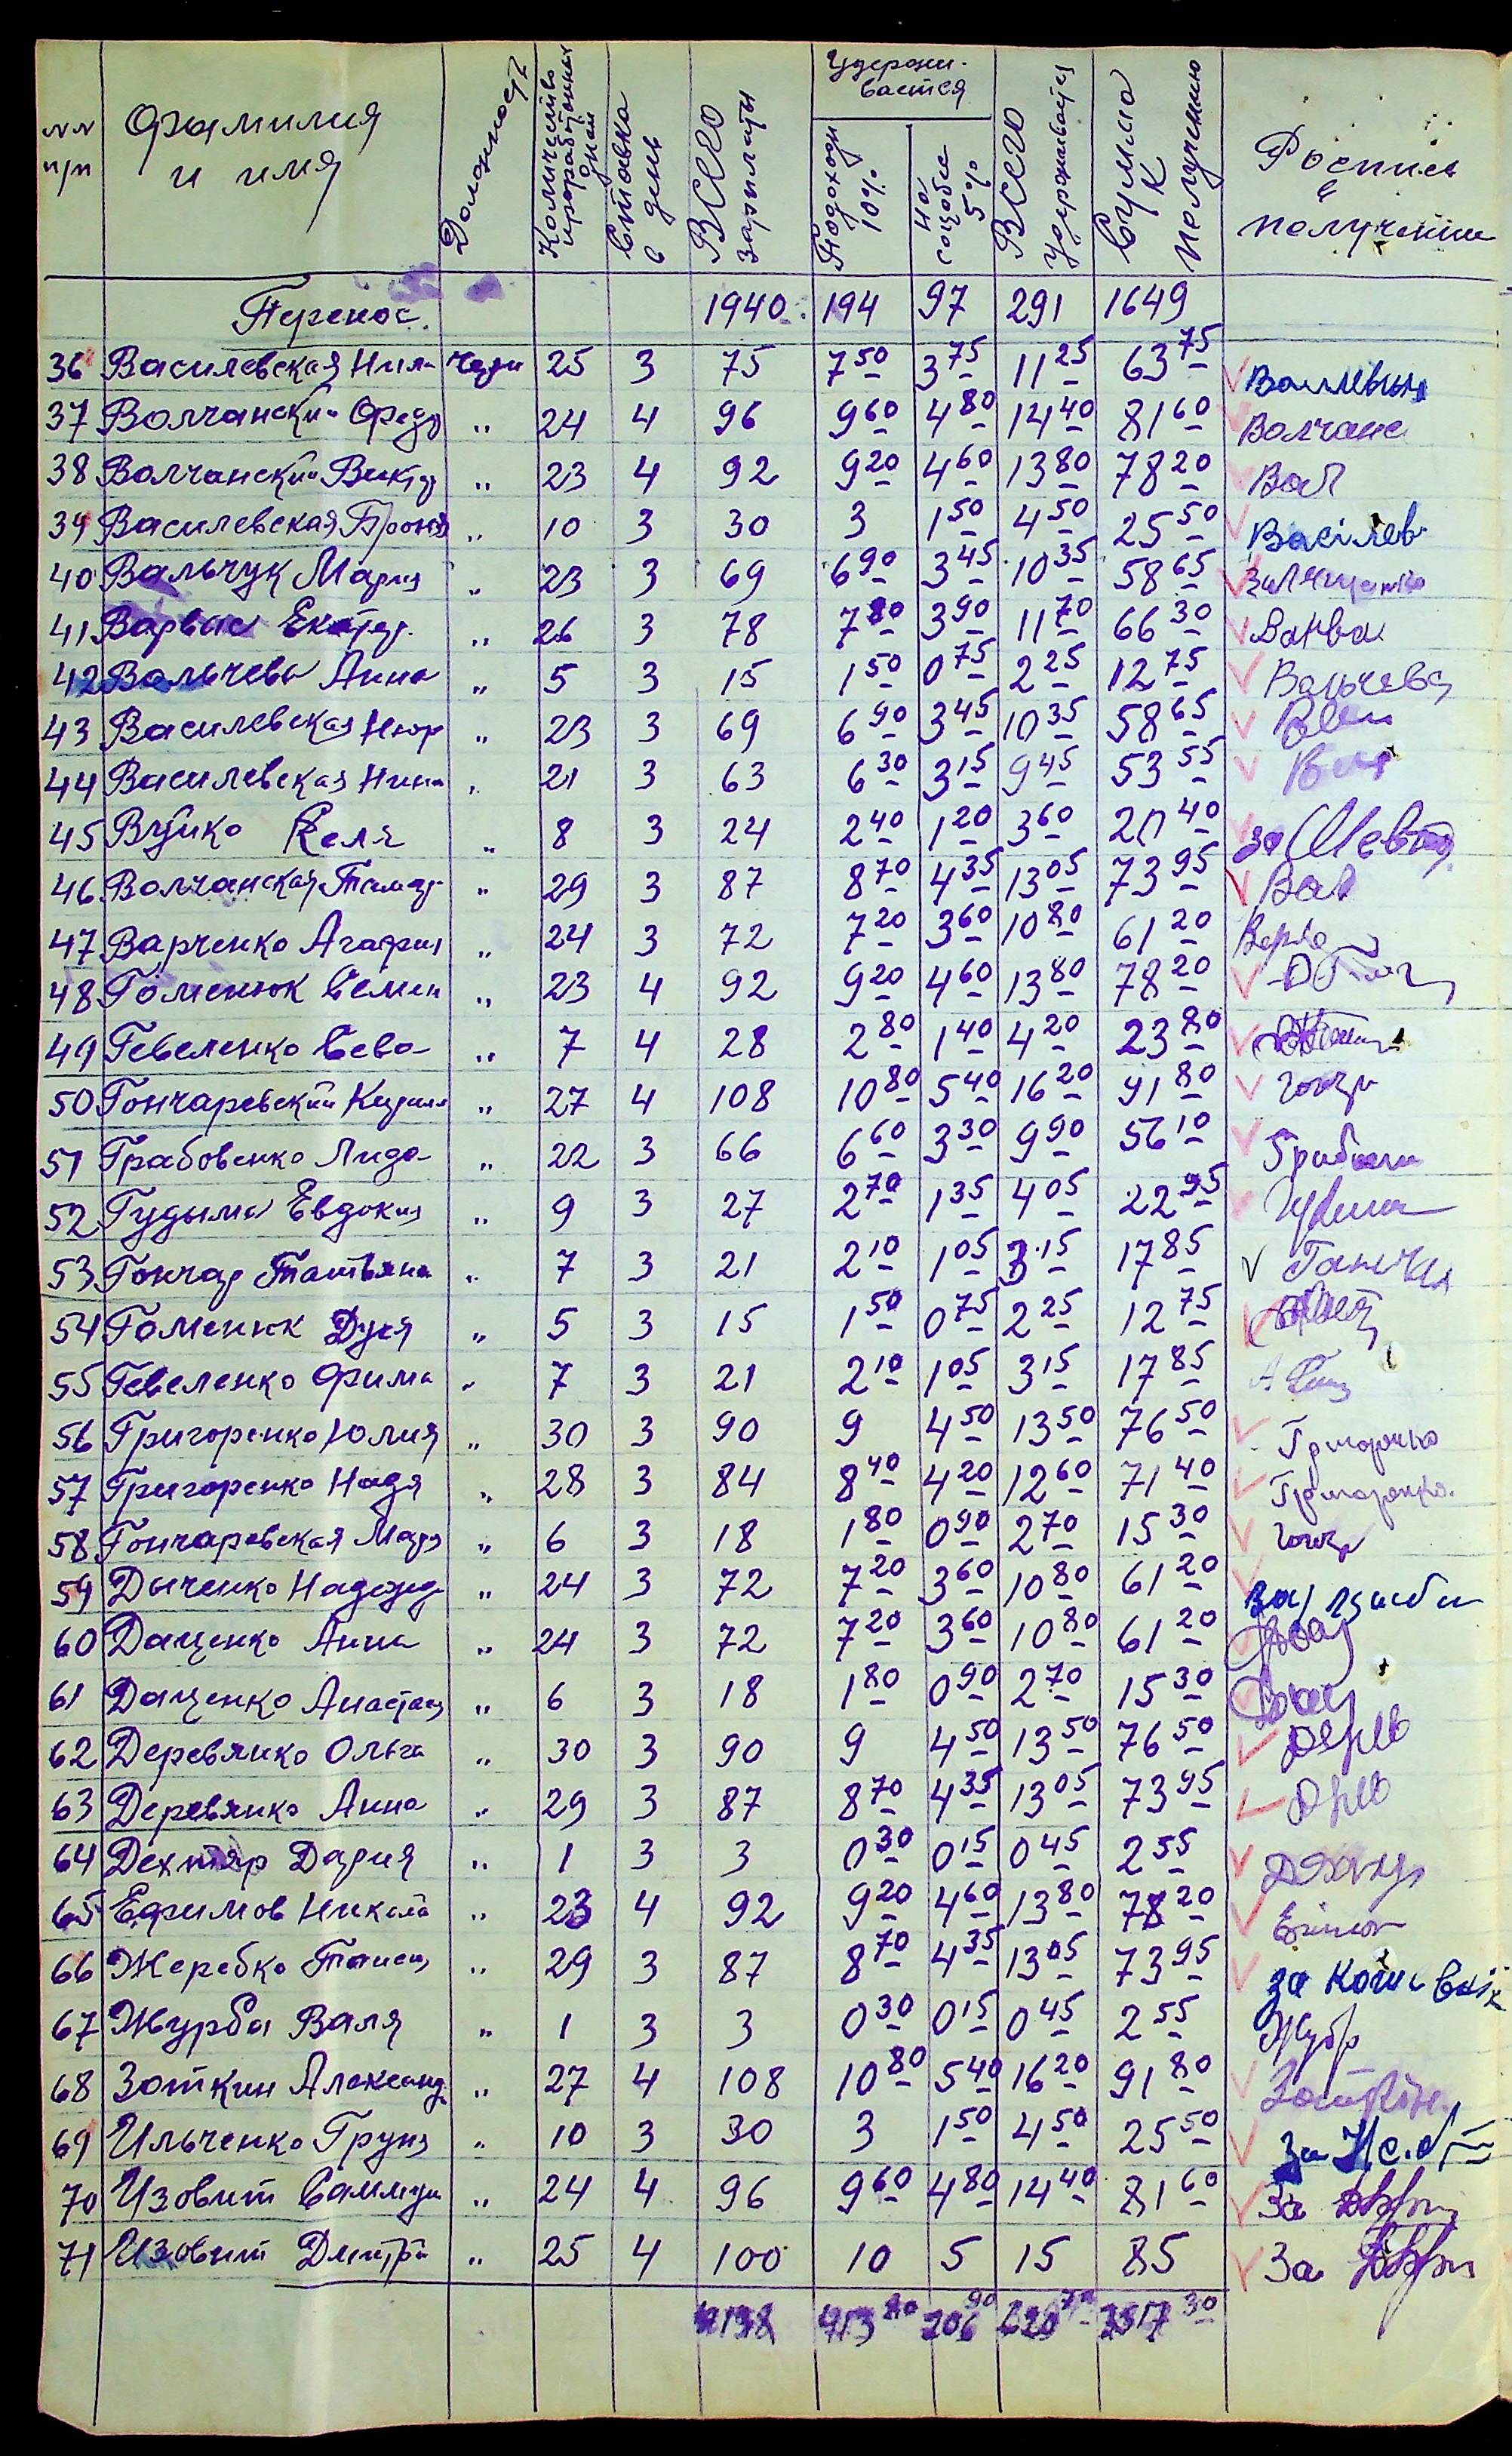 №№ п/п Фамилия и имя Должность Количество проработанных дней Ставка в день Всего зарплаты Удерживается Подоходн 10% На пособие 5% Всего удерживается Сумма к получению Роспись в получении
Перенос 1940 194 97 291 1649
36 Василевская Нила 25 3 75 7 50 3 75 11 25 63 75
37 Волчанский Федор " 24 4 96 9 60 4 80 14 40 81 60 Волчанс
38 Волчанский Виктр " 23 4 92 9 20 4 60 13 80 78 20 Вол
39 Василевская Броня " 10 3 30 3 1 50 4 50 25 50 Васілев
40 Вальчук Мария " 23 3 69 6 90 3 45 10 35 58 65
41 Варвас Екатер. " 26 3 78 7 80 3 90 11 70 66 30 Варвас
42 Вальчева Анна " 5 3 15 1 50 0 75 2 25 12 75 Вальчева
43 Василевская Нюр " 23 3 69 6 90 3 45 10 35 58 65
44 Василевская Нина " 21 3 63 6 30 3 15 9 45 53 55
45 Вуйко Геля " 8 3 24 2 40 1 20 3 60 20 40 за Шевч
46 Волчанская Тамар " 29 3 87 8 70 4 35 13 05 73 95 Вол
47 Варченко Агафия " 24 3 72 7 20 3 60 10 80 61 20
48 Гоменюк Семен " 23 4 92 9 20 4 60 13 80 78 20
49 Гевеленко Сева " 7 4 28 2 80 1 40 4 20 23 80
50 Гончаревский Кирилл " 27 4 108 10 80 5 40 16 20 91 80 Гончр
51 Грабовенко Лида " 22 3 66 6 60 3 30 9 90 56 10
52 Гудыма Евдокия " 9 3 27 2 70 1 35 4 05 22 95
53 Гончар Татьяна " 7 3 21 2 10 1 05 3 15 17 85
54 Гоменюк Дуся " 5 3 15 1 50 0 75 2 25 12 75
55 Гевеленко Фима " 7 3 21 2 10 1 05 3 15 17 85
56 Григоренко Юлия " 30 3 90 9 4 50 13 50 76 50 Григоренко
57 Григоренко Надя " 28 3 84 8 40 4 20 12 60 71 40 Григоренко.
58 Гончаревская Мари " 6 3 18 1 80 0 90 2 70 15 30 Гончр
59 Дыченко Надежд " 24 3 72 7 20 3 60 10 80 61 20
60 Даценко Анна " 24 3 72 7 20 3 60 10 80 61 20 Доц
61 Даценко Анастас " 6 3 18 1 80 0 90 2 70 15 30 Доц
62 Деревянко Ольга " 30 3 90 9 4 50 13 50 76 50 Дерев
63 Деревянко Анна " 29 3 87 8 70 4 35 13 05 73 95 Древ
64 Дехтяр Дария " 1 3 3 0 30 0 15 0 45 2 55
65 Ефимов Никола " 23 4 92 9 20 4 60 13 80 78 20 Ефимов
66 Жеребко Таиса " 29 3 87 8 70 4 35 13 05 73 95
67 Журба Валя " 1 3 3 0 30 0 15 0 45 2 55 Журб
68 Зоткин Александ " 27 4 108 10 80 5 40 16 20 91 80 Зоткін.
69 Ильченко Груня " 10 3 30 3 1 50 4 50 25 50
70 Изовит Саммуи " 24 4 96 9 60 4 80 14 40 81 60 За
71 Изовит Дмитри " 25 4 100 10 5 15 85 За
4138 413 80 206 90 620 70 3517 30